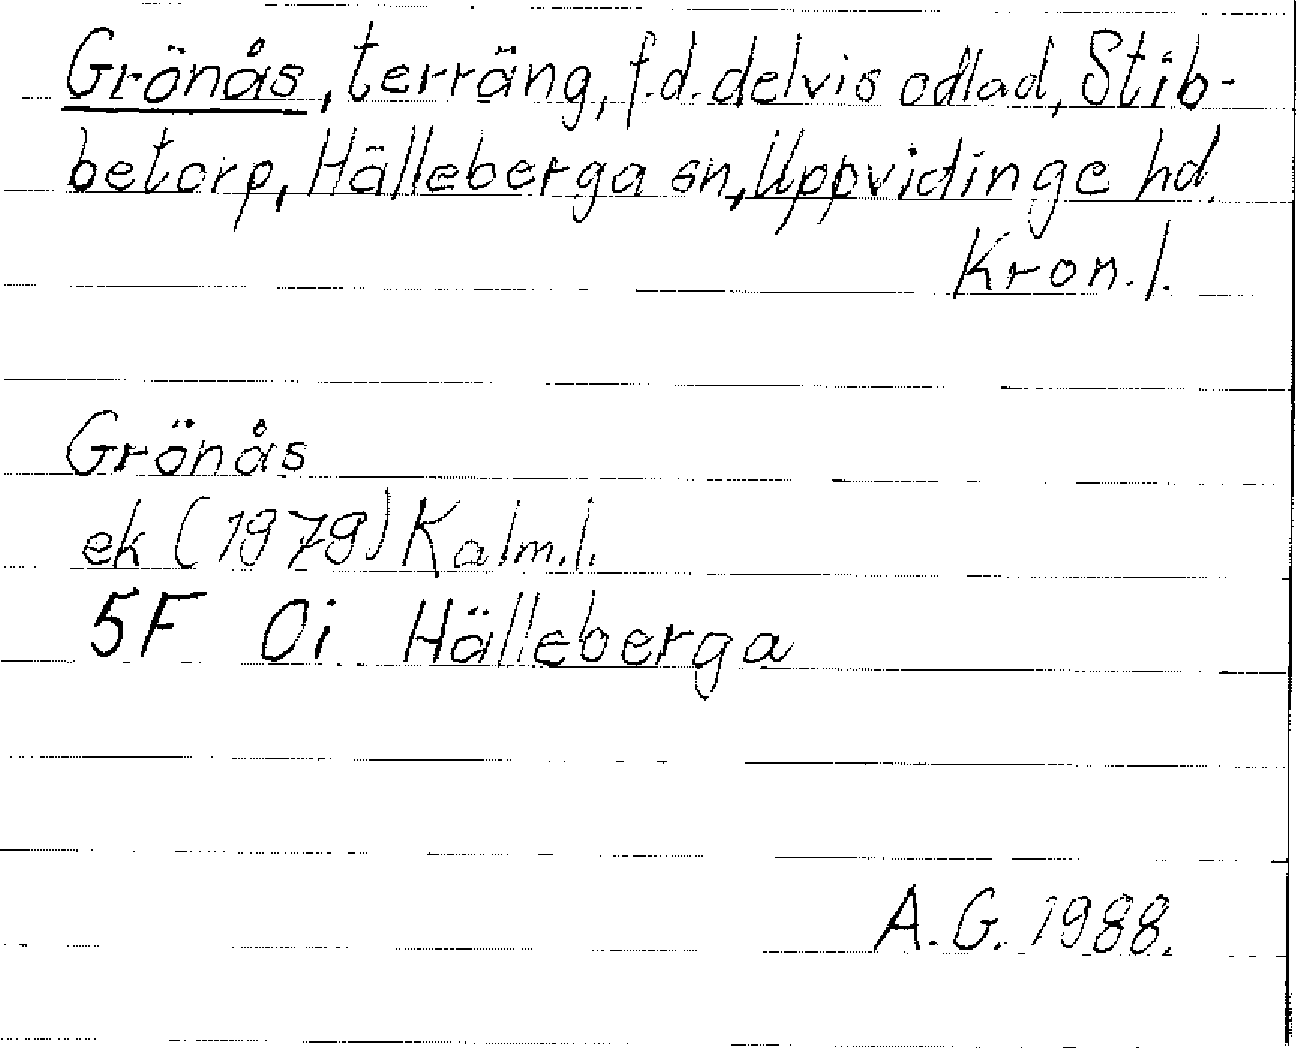 Grönås, terräng, f.d. delvis odlad, Stib-
betorp, Hälleberga sn, Uppvidinge hd.
Kron.l.
Grönås
ek (1979) Kalm.l.
5F 0i Hälleberga
A.G. 1988.